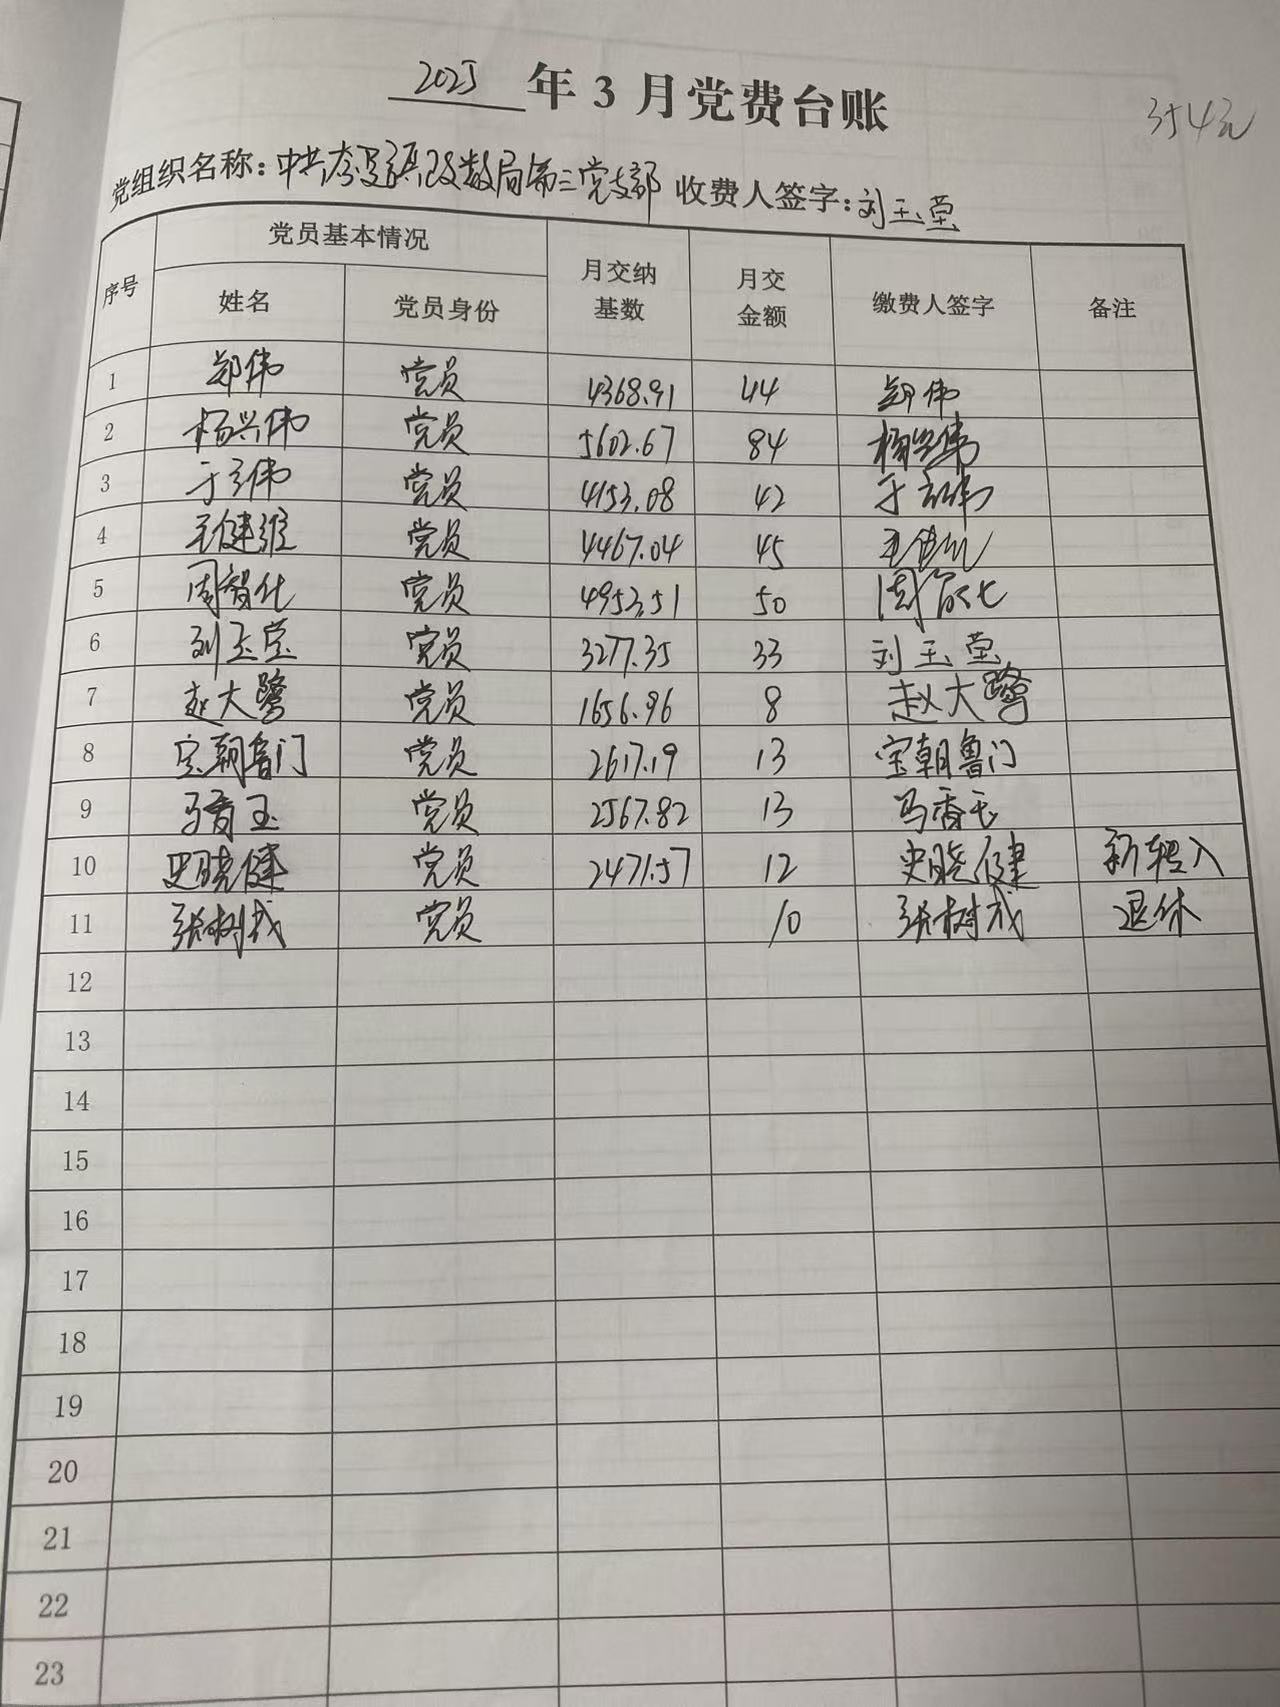 2025 年 3 月党费台账
354元
党组织名称：中共奈曼旗政数局第三党支部 收费人签字：刘玉莹
序号 党员基本情况 月交纳基数 月交金额 缴费人签字 备注
姓名 党员身份
1 郑伟 党员 4368.91 44 郑伟
2 杨兴伟 党员 5602.67 84 杨兴伟
3 于弘伟 党员 4153.08 42 于弘伟
4 王健维 党员 4467.04 45
5 周智化 党员 4953.51 50 周智化
6 刘玉莹 党员 3277.35 33 刘玉莹
7 赵大鹭 党员 1656.96 8 赵大鹭
8 宝朝鲁门 党员 2617.19 13 宝朝鲁门
9 马香玉 党员 2567.82 13 马香玉
10 史晓健 党员 2471.57 12 史晓健 新转入
11 张树成 党员 10 张树成 退休
12
13
14
15
16
17
18
19
20
21
22
23